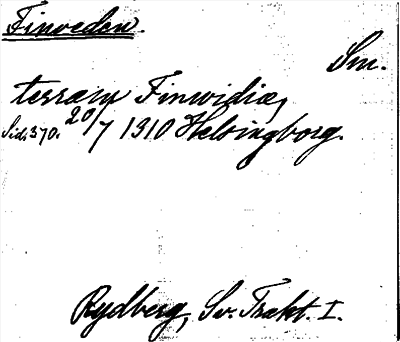 Finveden.
Sm.
terram Finwidiæ,
Sid. 370. 20/7 1310 Helsingborg.
Rydberg, Sv. Trakt. I.